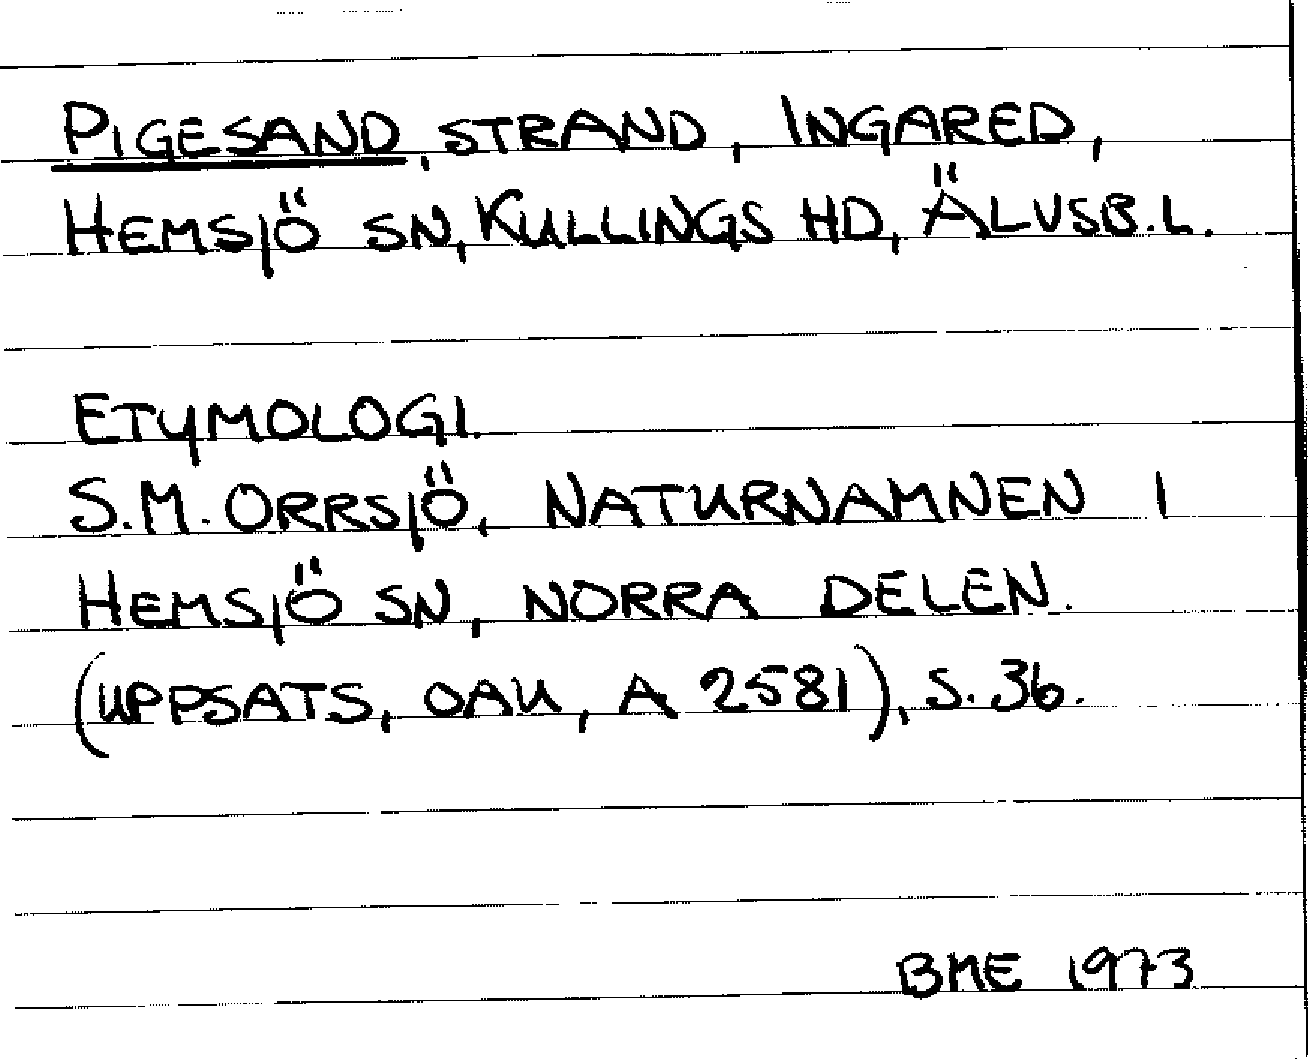 PIGESAND, STRAND, INGARED,
HEMSJÖ SN, KULLINGS HD, ÄLVSB. L.
ETYMOLOGI.
S.M. ORRSJÖ, NATURNAMNEN I
HEMSJÖ SN, NORRA DELEN.
(UPPSATS, OAU, A 2581), S. 36.
BME 1973